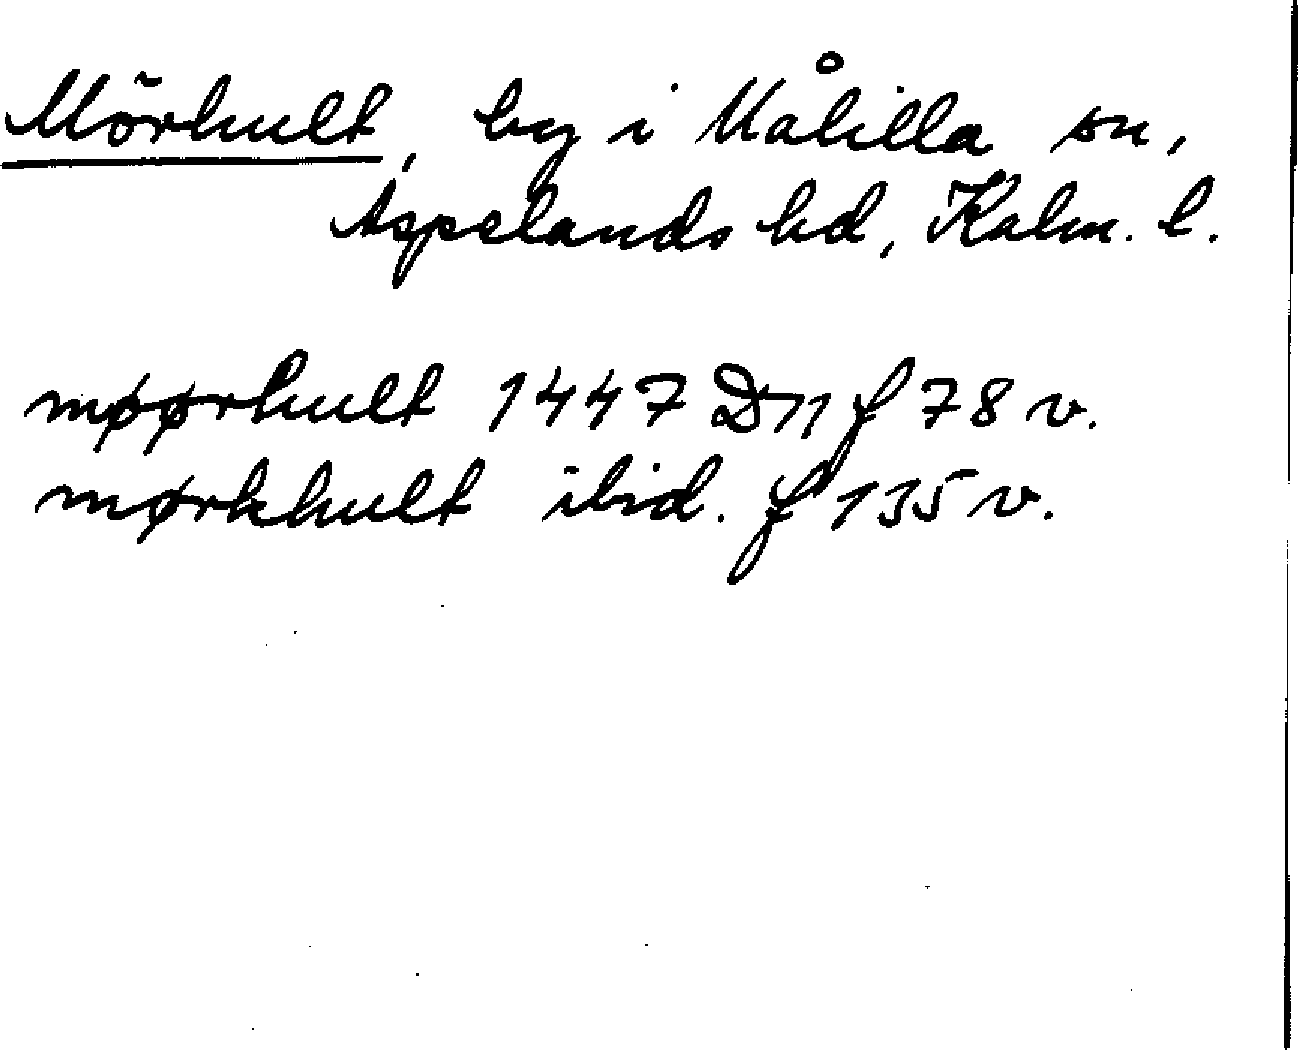 Mörhult, by i Målilla sn,
Aspelands hd, Kalm. l.
møørhult 1447 D 11 f 78 v.
mørkhult ibid. f 135 v.